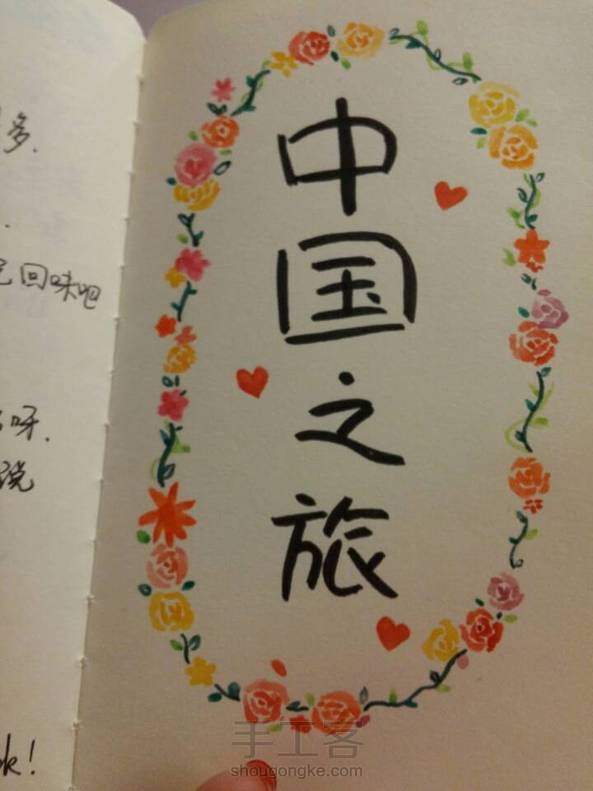 多.
回味吧
呀.
说
ok!
中
国
之
旅
手工客
shougongke.com